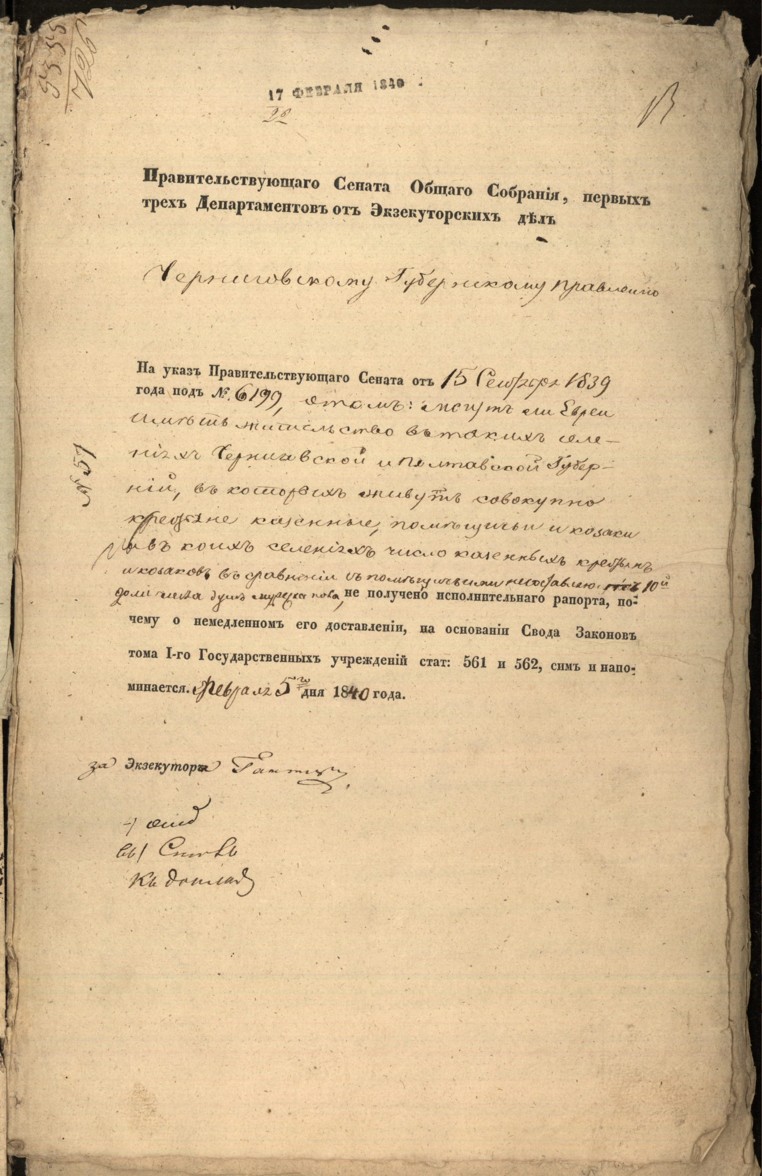 5355
17 ФЕВРАЛЯ 1840
Правительствующаго Сената Общаго Собранія, первыхъ
трехъ Департаментовъ отъ Экзекуторскихъ дѣлъ
Черниговскому Губернскому Правленію
На указъ Правительствующаго Сената отъ 15 Сентября 1839
года подъ №. 6199, о томъ: могутъ ли Евреи
имѣть жительство въ такихъ селе-
ніяхъ Черниговской и Полтавской Губер-
ній, въ которыхъ живутъ совокупно
крестьяне казенные, помѣщичьи и козаки
и въ коихъ селеніяхъ число казенныхъ крестьянъ
и козаковъ въ сравненіи съ помѣщичьими не составляютъ 10й
доли числа душъ мужеска пола, не получено исполнительнаго рапорта, по-
чему о немедленномъ его доставленіи, на основаніи Свода Законовъ
тома I-го Государственныхъ учрежденій стат: 561 и 562, симъ и напо-
минается. Февраля 5го дня 1840 года.
№ 51
за Экзекутора
Къ докладу